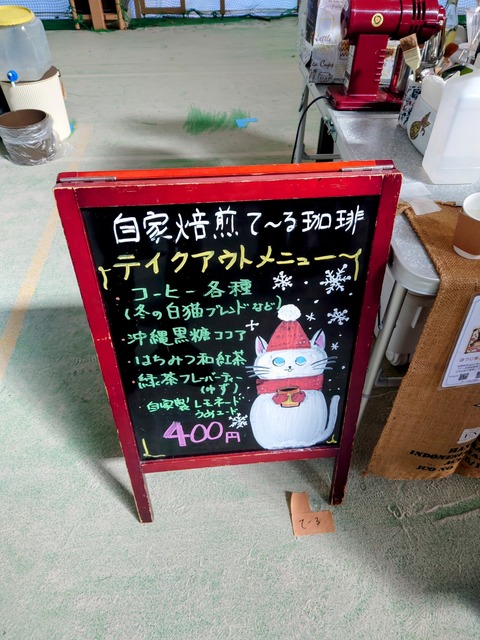 自家焙煎て〜る珈琲
テイクアウトメニュー
コーヒー各種
(冬の白猫ブレンドなど)
沖縄黒糖ココア
はちみつ和紅茶
緑茶フレーバーティー
(ゆず)
自家製 レモネード
うめエード
400円
て〜る
INDONE